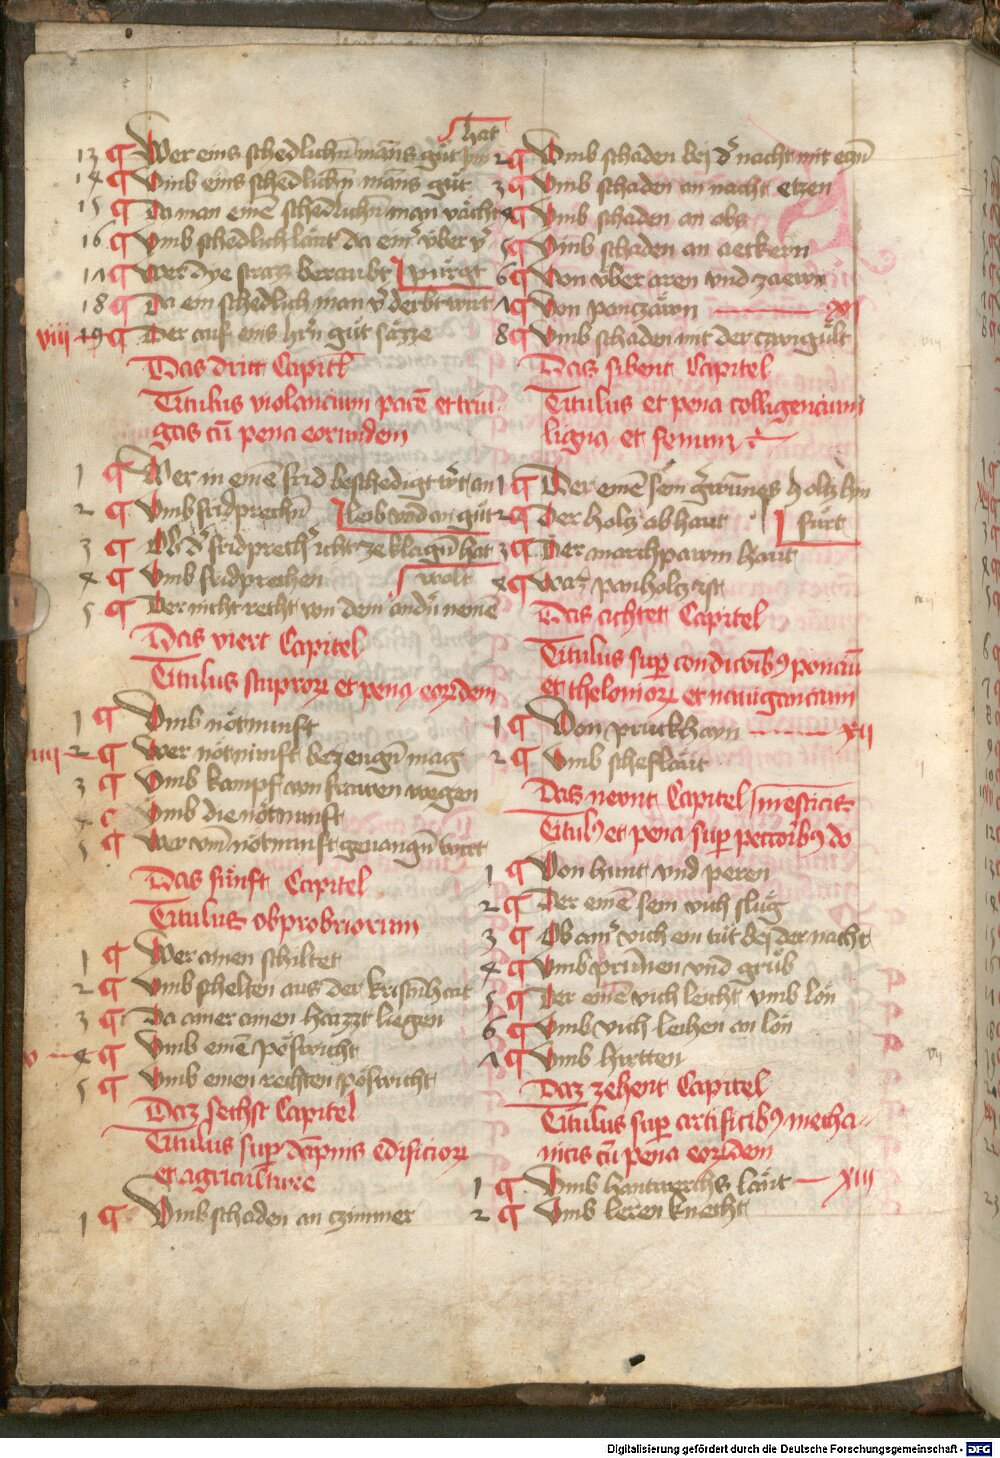 hat
13 ¶ Wer eins schedlichn̄ mans gůt inn
14 ¶ Vmb eins schedlichn̄ mans gůt
15 ¶ Da man einē schedlichn̄ man vächt
16 ¶ Vmb schedlich läut da eimͬ vͤber vͬ
17 ¶ Wer dye strazz beraubt pürgt
18 ¶ Da ein schedlich man vͬderbt wirt
viii 19 ¶ Der auf eins hrͬn gůt säzze
Das dritt Capitl
Titulus violancium pacē et treu
gas cū pena eorundem
1 ¶ Wer in einē frid beschedigt wͬt an
2 ¶ Vmb fridprechn̄ leib vnd an gůt
3 ¶ Ob dͬ fridprechͬ icht ze klagn̄ hat
4 ¶ Vmb fridprechen wolt
5 ¶ Der nicht recht von dem andͬn nemē
Das viert Capitel
Titulus stuproꝝ et penꝰ eoꝝdem
1 ¶ Vmb nötnunft
2 ¶ Wer nötnunft bezeugn̄ mag
3 ¶ Vmb kampf von frawen wegen
4 C Vmb die nötnunft
5 ¶ Wer vm̄ nötnunft geuangn̄ wirt
Das fünft Capitel
Titulus obprobriorum
1 ¶ Wer ainen schiltet
2 ¶ Vmb schelten aus der kristnhait
3 ¶ Da ainer ainen haizzt liegen
v 4 ¶ Vmb einē pöswicht
5 ¶ Vmb einen rechten pöswicht
Daz sechst Capitel
Titulus suꝑ dāpnis edificioꝝ
et agriculture
1 ¶ Vmb schaden an czimmer
2 ¶ Vmb schaden bei dͬ nacht mit
3 ¶ Vmb schaden an nacht etzen
4 ¶ Vmb schaden an obs
5 ¶ Vmb schaden an aeckern
6 ¶ Von vͤber aren vnd zaewn
7 ¶ Von panzäwn XI
8 ¶ Vmb schaden mit der
Daz sibent Capitel
Titulus et pena colligencium
ligna et fenum
1 ¶ Der einē sein grünes holtz hin
2 ¶ Der holtz abhaut fürt
3 ¶ Der marchpawm haut
4 ¶ Waz panholtz ist
Das achtet Capitel
Titulus suꝑ condicōibꝰ ponciū
et theloneoꝝ et nauigancium
1 ¶ Von pruckhayn XII
2 ¶ Vmb scheflaͤut
Das neunt Capitel mesticis
Titulꝰ et pena suꝑ peccoribꝰ do
1 ¶ Von hunt vnd peren
2 ¶ Der einē sein vich slůg
3 ¶ Ob aimͬ vich ein tůt bei der nacht
4 ¶ Vmb prunnen vnd grůb
5 ¶ Der einē vich leicht vmb lön
6 ¶ Vmb vich leihen an lön
7 ¶ Vmb hirtten
Daz zehent Capitel
Titulus suꝑ artificibꝰ mecha
nicis cū pena eoꝝdem
1 ¶ Vmb hantwerchs laͤut XIII
2 ¶ Vmb leren knecht
Digitalisierung gefördert durch die Deutsche Forschungsgemeinschaft - DFG